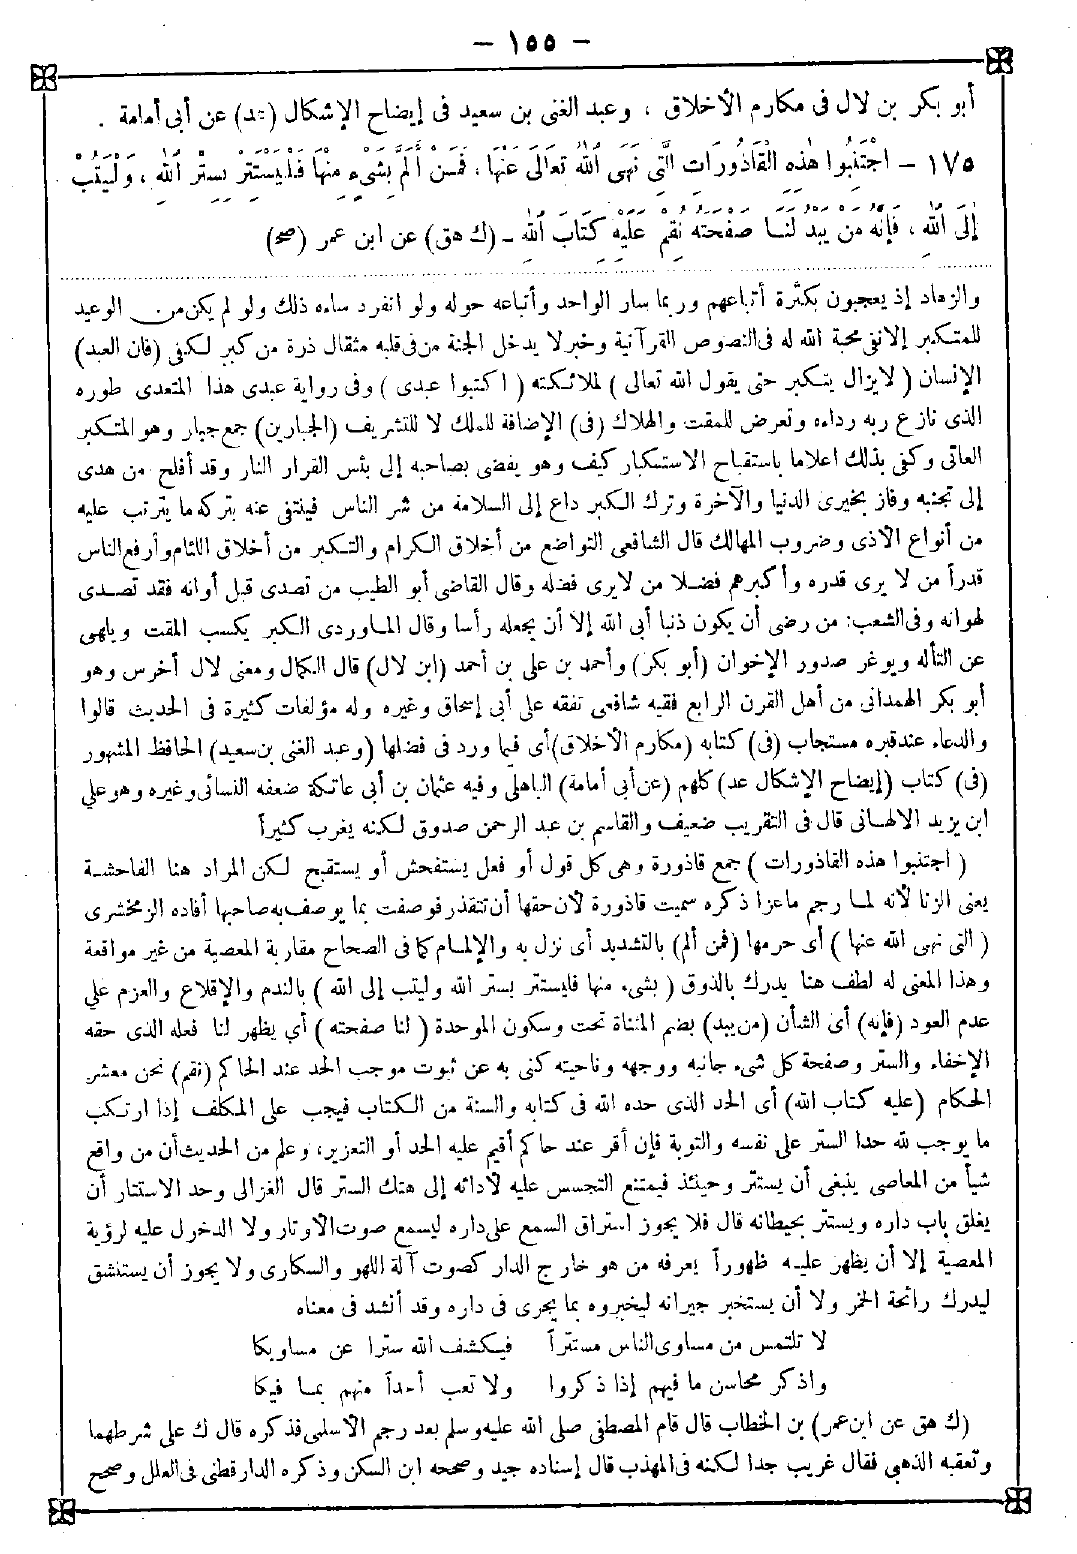 – ١٥٥ –
أبو بكر بن لال فى مكارم الأخلاق ، وعبد الغنى بن سعيد فى إيضاح الإشكال (عد) عن أبى أمامة .
١٧٥ – اجْتَنِبُوا هٰذِهِ الْقَاذُورَاتِ الَّتِي نَهَى اللهُ تَعَالَى عَنْهَا ، فَمَنْ أَلَمَّ بِشَيْءٍ مِنْهَا فَلْيَسْتَتِرْ بِسِتْرِ اللهِ ، وَلْيَتُبْ
إِلَى اللهِ ، فَإِنَّهُ مَنْ يُبْدِ لَنَا صَفْحَتَهُ نُقِمْ عَلَيْهِ كِتَابَ اللهِ ــ (ك هق) عن ابن عمر (صح)
والزهاد إذ يعجبون بكثرة أتباعهم وربما سار الواحد وأتباعه حوله ولو انفرد ساءه ذلك ولو لم يكن من الوعيد
للمتكبر إلا نفى محبة الله له فى النصوص القرآنية وخبر لا يدخل الجنة من فى قلبه مثقال ذرة من كبر لكفى (فان العبد)
الإنسان ( لا يزال يتكبر حتى يقول الله تعالى ) لملائكته ( اكتبوا عبدى ) وفى رواية عبدى هذا المتعدى طوره
الذى نازع ربه رداءه وتعرض للمقت والهلاك (فى) الإضافة للملك لا للتشريف (الجبارين) جمع جبار وهو المتكبر
العاتى وكفى بذلك اعلاما باستقباح الاستكبار كيف وهو يفضى بصاحبه إلى بئس القرار النار وقد أفلح من هدى
إلى تجنبه وفاز بخيرى الدنيا والآخرة وترك الكبر داع إلى السلامة من شر الناس فينتفى عنه بتركه ما يترتب عليه
من أنواع الأذى وضروب المهالك قال الشافعى التواضع من أخلاق الكرام والتكبر من أخلاق اللئام وأرفع الناس
قدراً من لا يرى قدره وأكبرهم فضلا من لا يرى فضله وقال القاضى أبو الطيب من تصدى قبل أوانه فقد تصدى
لهوانه وفى الشعب: من رضى أن يكون ذنبا أبى الله إلا أن يجعله رأسا وقال الماوردى الكبر يكسب المقت ويلهى
عن التأله ويوغر صدور الإخوان (أبو بكر) وأحمد بن على بن أحمد (ابن لال) قال الكمال ومعنى لال أخرس وهو
أبو بكر الهمدانى من أهل القرن الرابع فقيه شافعى تفقه على أبى إسحاق وغيره وله مؤلفات كثيرة فى الحديث قالوا
والدعاء عند قبره مستجاب (فى) كتابه (مكارم الأخلاق) أى فيما ورد فى فضلها (وعبد الغنى بن سعيد) الحافظ المشهور
(فى) كتاب (إيضاح الإشكال عد) كلهم (عن أبى أمامة) الباهلى وفيه عثمان بن أبى عاتكة ضعفه النسائى وغيره وهو على
ابن يزيد الالهانى قال فى التقريب ضعيف والقاسم بن عبد الرحمن صدوق لكنه يغرب كثيراً
( اجتنبوا هذه القاذورات ) جمع قاذورة وهى كل قول أو فعل يستفحش أو يستقبح لكن المراد هنا الفاحشة
يعنى الزنا لأنه لما رجم ماعزا ذكره سميت قاذورة لأن حقها أن تتقذر فوصفت بما يوصف به صاحبها أفاده الزمخشرى
( التى نهى الله عنها ) أى حرمها (فمن ألم) بالتشديد أى نزل به والإلمام كما فى الصحاح مقاربة المعصية من غير مواقعة
وهذا المعنى له لطف هنا يدرك بالذوق ( بشىء منها فليستتر بستر الله وليتب إلى الله ) بالندم والإقلاع والعزم على
عدم العود (فإنه) أى الشأن (من يبد) بضم المثناة تحت وسكون الموحدة ( لنا صفحته ) أي يظهر لنا فعله الذى حقه
الإخفاء والستر وصفحة كل شىء جانبه ووجهه وناحيته كنى به عن ثبوت موجب الحد عند الحاكم (نقم) نحن معشر
الحكام (عليه كتاب الله) أى الحد الذى حده الله فى كتابه والسنة من الكتاب فيجب على المكلف إذا ارتكب
ما يوجب لله حدا الستر على نفسه والتوبة فإن أقر عند حاكم أقيم عليه الحد أو التعزير، وعلم من الحديث أن من واقع
شيأ من المعاصى ينبغى أن يستتر وحينئذ فيمتنع التجسس عليه لأدائه إلى هتك الستر قال الغزالى وحد الاستتار أن
يغلق باب داره ويستتر بحيطانه قال فلا يجوز استراق السمع على داره ليسمع صوت الأوتار ولا الدخول عليه لرؤية
المعصية إلا أن يظهر عليه ظهوراً يعرفه من هو خارج الدار كصوت آلة اللهو والسكارى ولا يجوز أن يستنشق
ليدرك رائحة الخمر ولا أن يستخبر جيرانه ليخبروه بما يجرى فى داره وقد أنشد فى معناه
لا تلتمس من مساوى الناس مستتراً فيكشف الله سترا عن مساويكا
واذكر محاسن ما فيهم إذا ذكروا ولا تعب أحداً منهم بما فيكا
(ك هق عن ابن عمر) بن الخطاب قال قام المصطفى صلى الله عليه وسلم بعد رجم الأسلمى فذكره قال ك على شرطهما
وتعقبه الذهبى فقال غريب جدا لكنه فى المهذب قال إسناده جيد وصححه ابن السكن وذكره الدارقطنى فى العلل وصحح